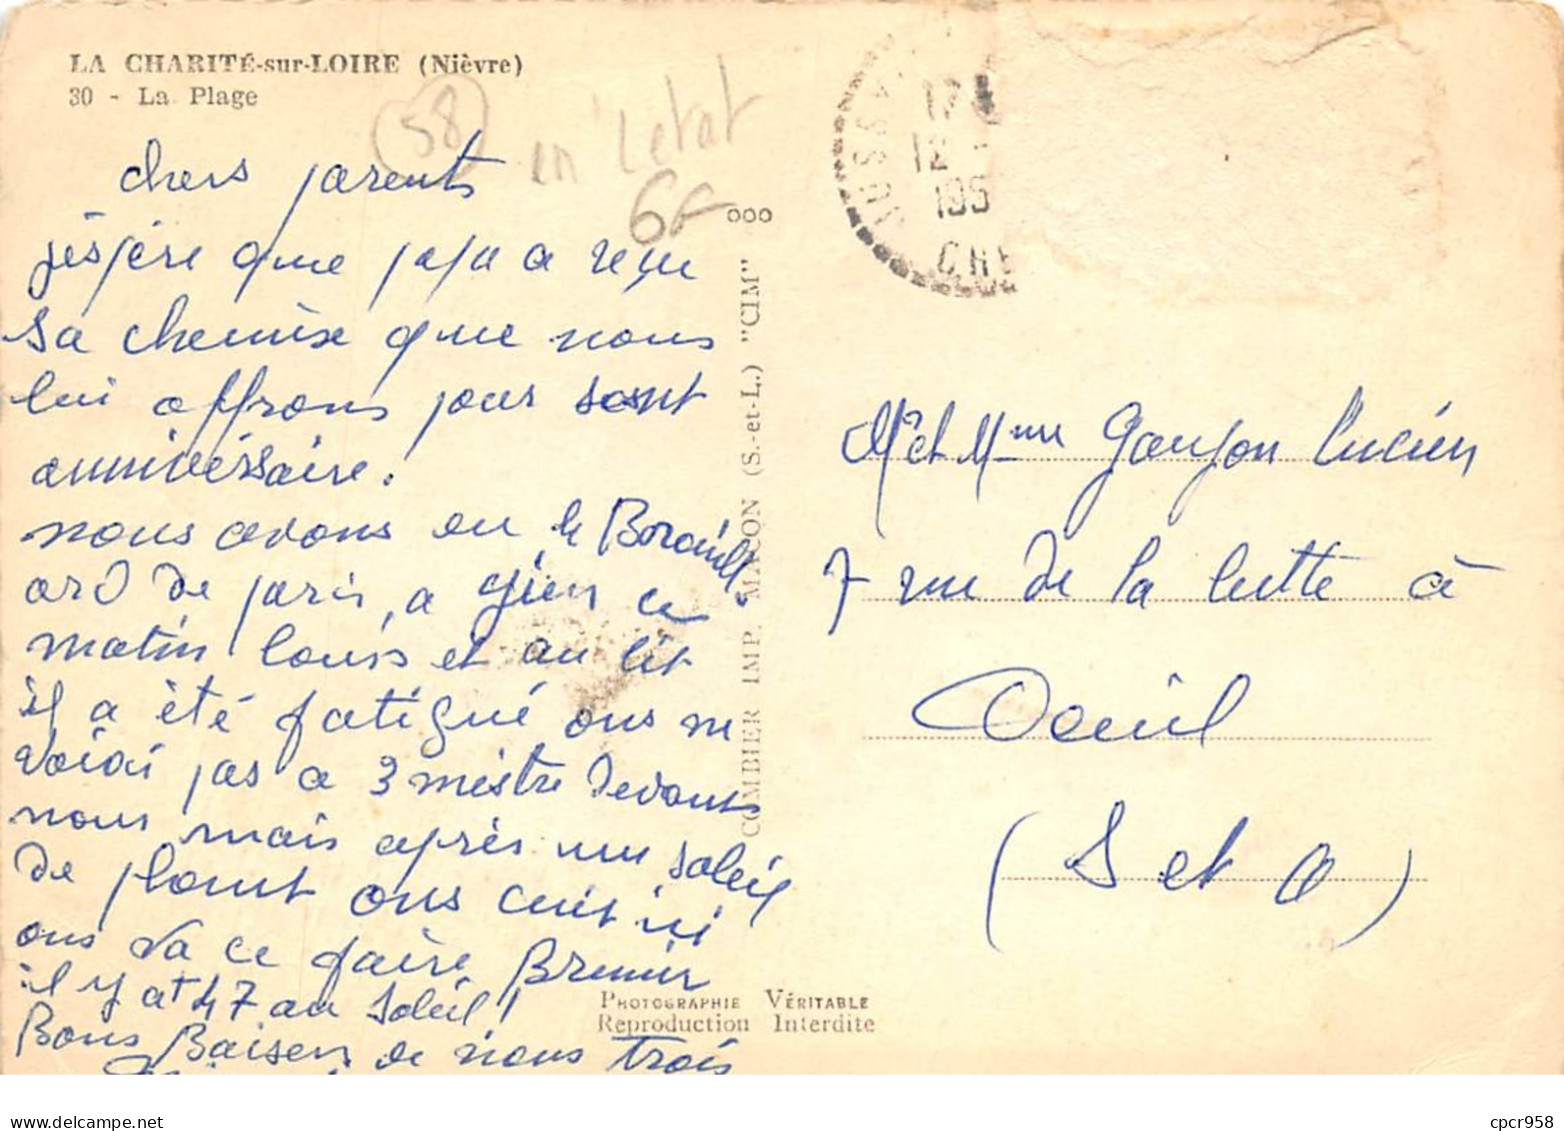 LA CHARITÉ-sur-LOIRE (Nièvre)
30 - La Plage
58
en l'etat
6€
chers parents
j'éspére que papa a reçu
sa chemise que nous
lui offrons pour sont
anniversaire.
nous avons eu le Brouill
ard de paris, a gien ce
matin louis et au lit
il a été fatigué ons ne
voiai pas a 3 mèstre devants
nous mais après un soleil
de plomt ons cuit ici
ons va ce faire Brunir
il y at 47 au soleil!
Bons Baisers de nous trois
ooo
COMBIER IMP. MACON (S.-et-L.) "CIM"
17
12
195
CHE
Mr et Mme Goujon lucien
7 rue de la lutte à
Deuil
(S et O)
PHOTOGRAPHIE VÉRITABLE
Reproduction Interdite
www.delcampe.net
cpcr958